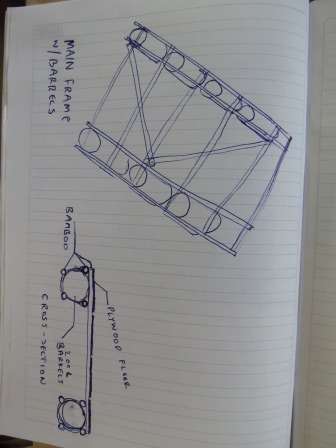 MAIN FRAME
W/ BARRELS
BAMBOO
PLYWOOD FLOOR
200L
BARRELS
CROSS-SECTION